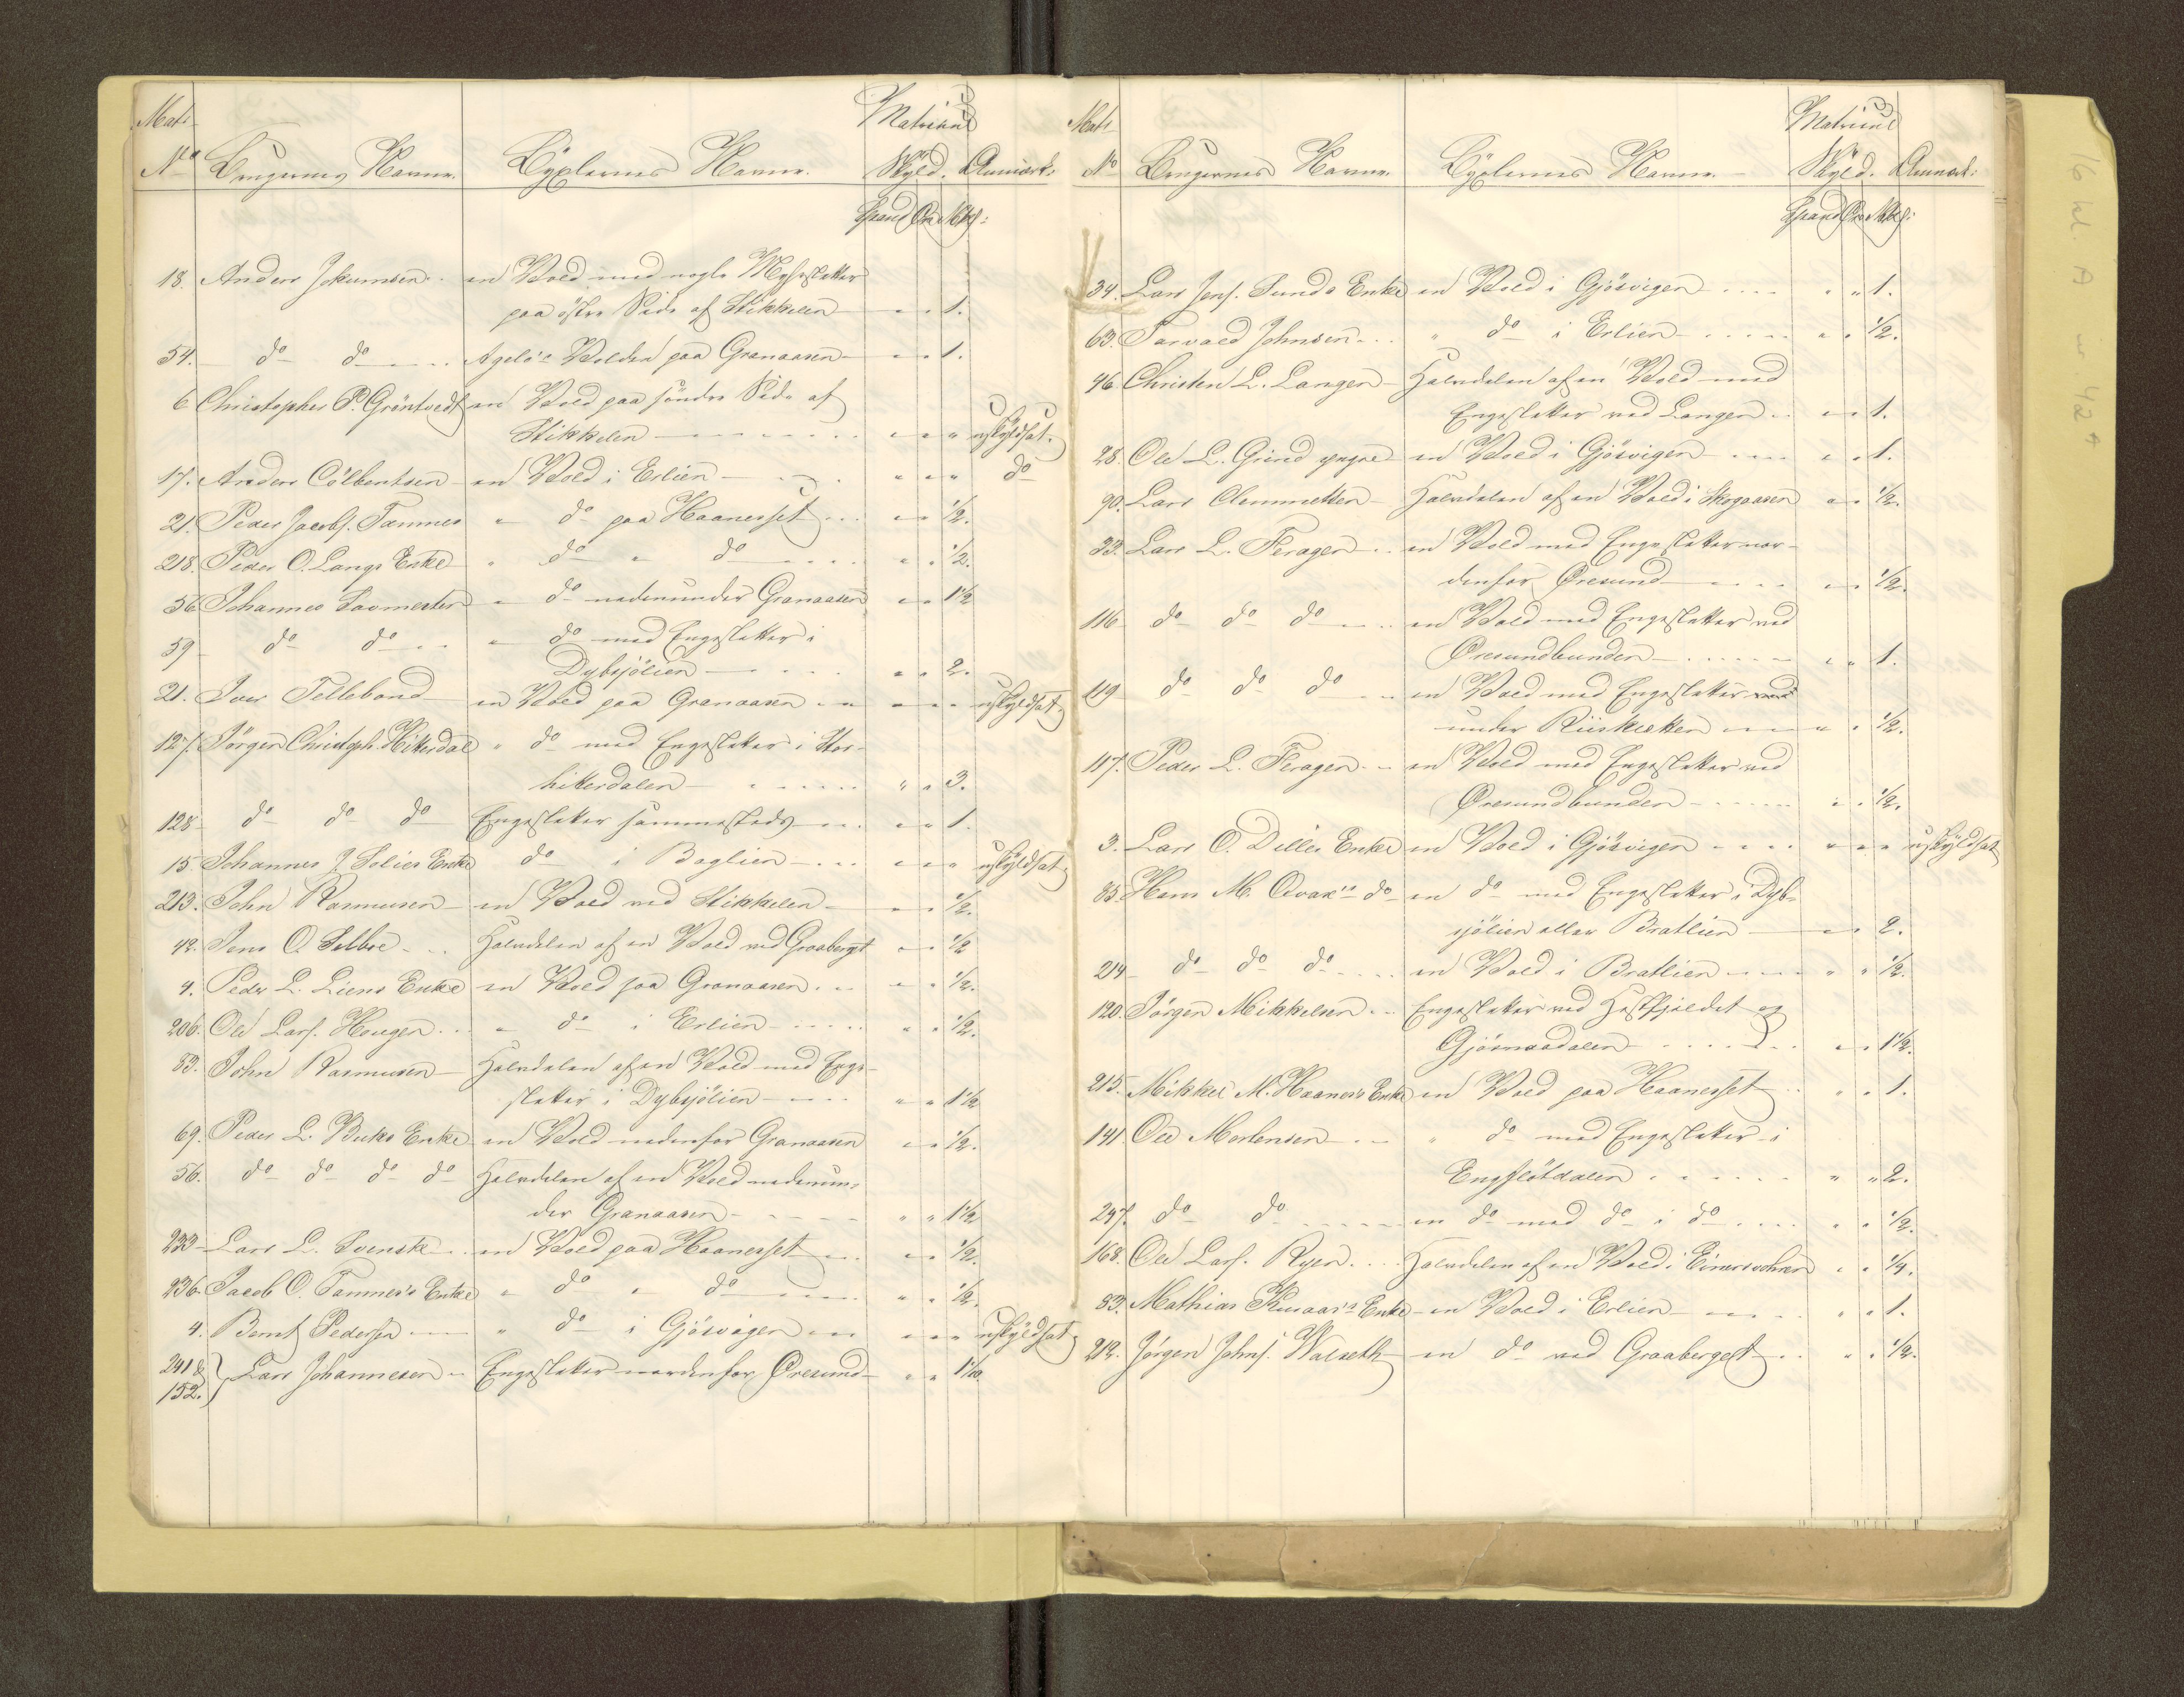 Mat:
Matricul
No Brugernes Navne. Byxlernes Navne. Skyld. Anmærk:
Spand Øre Mkl:
18. Anders Jokumsen en Vold med nogle Myhrslætter
paa østre Side af Stikkelen " " 1.
54. do do Agelö's Volden paa Granaasen " " 1.
6 Christopher P. Gröntvedt en Vold paa söndre Side af
Stikkelen " " " uskyldsat.
17. Anders Cölbentsen en Vold i Erlien " " " do
21. Peder Jacobs. Tamnes " do paa Haanesset " " 1/2.
218. Peder O. Langs Enke " do " do " " 1/2.
56 Johannes Savmester " do nedenunder Granaasen " " 1 1/2
59 do do " do med Engeslætter i
Dybsjölien " " 2.
21. Iver Tellebond en Vold paa Granaasen " " " uskyldsat.
127. Jörgen Christoph. Hitterdal " do med Engeslætter i Stor-
hitterdalen " " 3.
128 do do do Engeslætter sammesteds " " 1.
15 Johannes J. Solies Enke do i Baglien " " " uskyldsat
213. John Rasmusen en Vold ved Stikkelen " " 1/2.
42. Jens O. Selboe Halvdelen af en Vold ved Graaberget " " 1/2
4. Peder L. Liens Enke en Vold paa Granaasen " " 1/2.
206. Ole Lars. Hougen " do i Erlien " " 1/2.
83. John Rasmusen Halvdelen af en Vold med Enge-
slætter i Dybsjölien " " 1 1/2
69. Peder L. Buks Enke en Vold nedenfor Granaasen " " 1/2.
56. do do do do Halvdelen af en Vold nedenun-
der Granaasen " " 1 1/2
233 Lars L. Svensk en Vold paa Haanesset " " 1/2.
236. Jacob O. Tamnes's Enke " do " do " " 1/2.
4. Bernt Pedersen " do i Gjösvigen " " " uskyldsat
241 &
152. Lars Johannesen Engeslætter nordenfor Øresund " " 1 1/10
Mat:
Matricul
No Brugernes Navne. Byxlernes Navne. Skyld. Anmærk:
Spand Øre Mkl:
34. Lars Jens. Sunds Enke en Vold i Gjösvigen " " 1.
63. Tarvald Johnsen " do i Erlien " " 1/2.
46. Christen L. Langen Halvdelen af en Vold med
Engeslætter ved Langen " " 1.
28. Ole L. Grind yngre en Vold i Gjösvigen " " 1.
90. Lars Clemmetsen Halvdelen af en Vold i Skogaasen " " 1/2.
33. Lars L. Feragen en Vold med Engeslætter nor-
denfor Øresund " " 1/2.
116 do do do en Vold med Engeslætter ved
Øresundbunden " " 1.
119 do do do en Vold med Engeslætter ved
under Riiskletten " " 1/2.
117. Peder L. Feragen en Vold med Engeslætter ved
Øresundbunden " " 1/2.
3. Lars O. Dilles Enke en Vold i Gjösvigen " " " uskyldsat
85. Hans M. Qvak's do en do med Engeslætter i Dyb-
sjölien eller Bratlien " " 2.
214 do do do en Vold i Bratlien " " 1/2.
120. Jörgen Mikkelsen Engeslætter ved Hestfjeldet og
Gjösvaadalen " " 1 1/2.
215. Mikkel M. Haanes's Enke en Vold paa Haanesset " " 1.
141. Ole Mortensen " do med Engeslætter i
Engflötdalen " " 2.
247. do do en do med do i do " " 1/2.
168. Ole Lars. Ryen Halvdelen af en Vold i Einersvolien " " 1/4.
83. Mathias Kuraas's Enke en Vold i Erlien " " 1.
212. Jörgen Johns. Walseth en do ved Graaberget " " 1/2.
16 kl. A nr 42 A